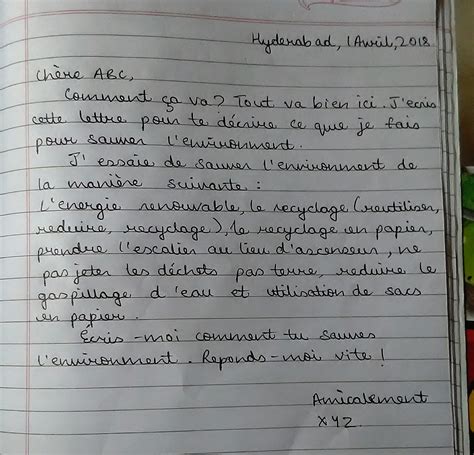 Hyderabad, 1 Avril, 2018
Chère ABC,
Comment ça va? Tout va bien ici. J'ecris
cette lettre pour te décrire ce que je fais
pour sauver l'environment.
J' essaie de sauver l'environment de
la manière suivante :
L'energie renouvable, le recyclage (reutiliser,
reduire, recyclage), le recyclage en papier,
prendre l'escalier au lieu d'ascenseur, ne
pas jeter les déchets pas terre, reduire le
gaspillage d'eau et utilisation de sacs
en papier.
Écris-moi comment tu sauves
l'environment. Reponds-moi vite !
Amicalement
XYZ.